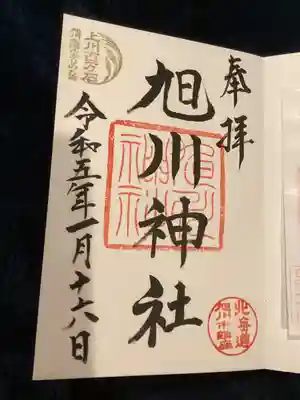 奉拝
旭川神社
令和五年一月十六日
上川百万石
北海道
旭川市鎮座